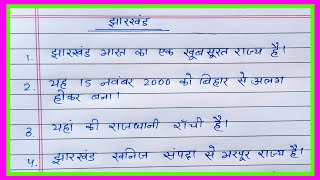 झारखंड
1. झारखंड भारत का एक खूबसूरत राज्य है।
2. यह 15 नवंबर 2000 को बिहार से अलग
होकर बना।
3. यहां की राजधानी राँची है।
4. झारखंड खनिज संपदा से भरपूर राज्य है।